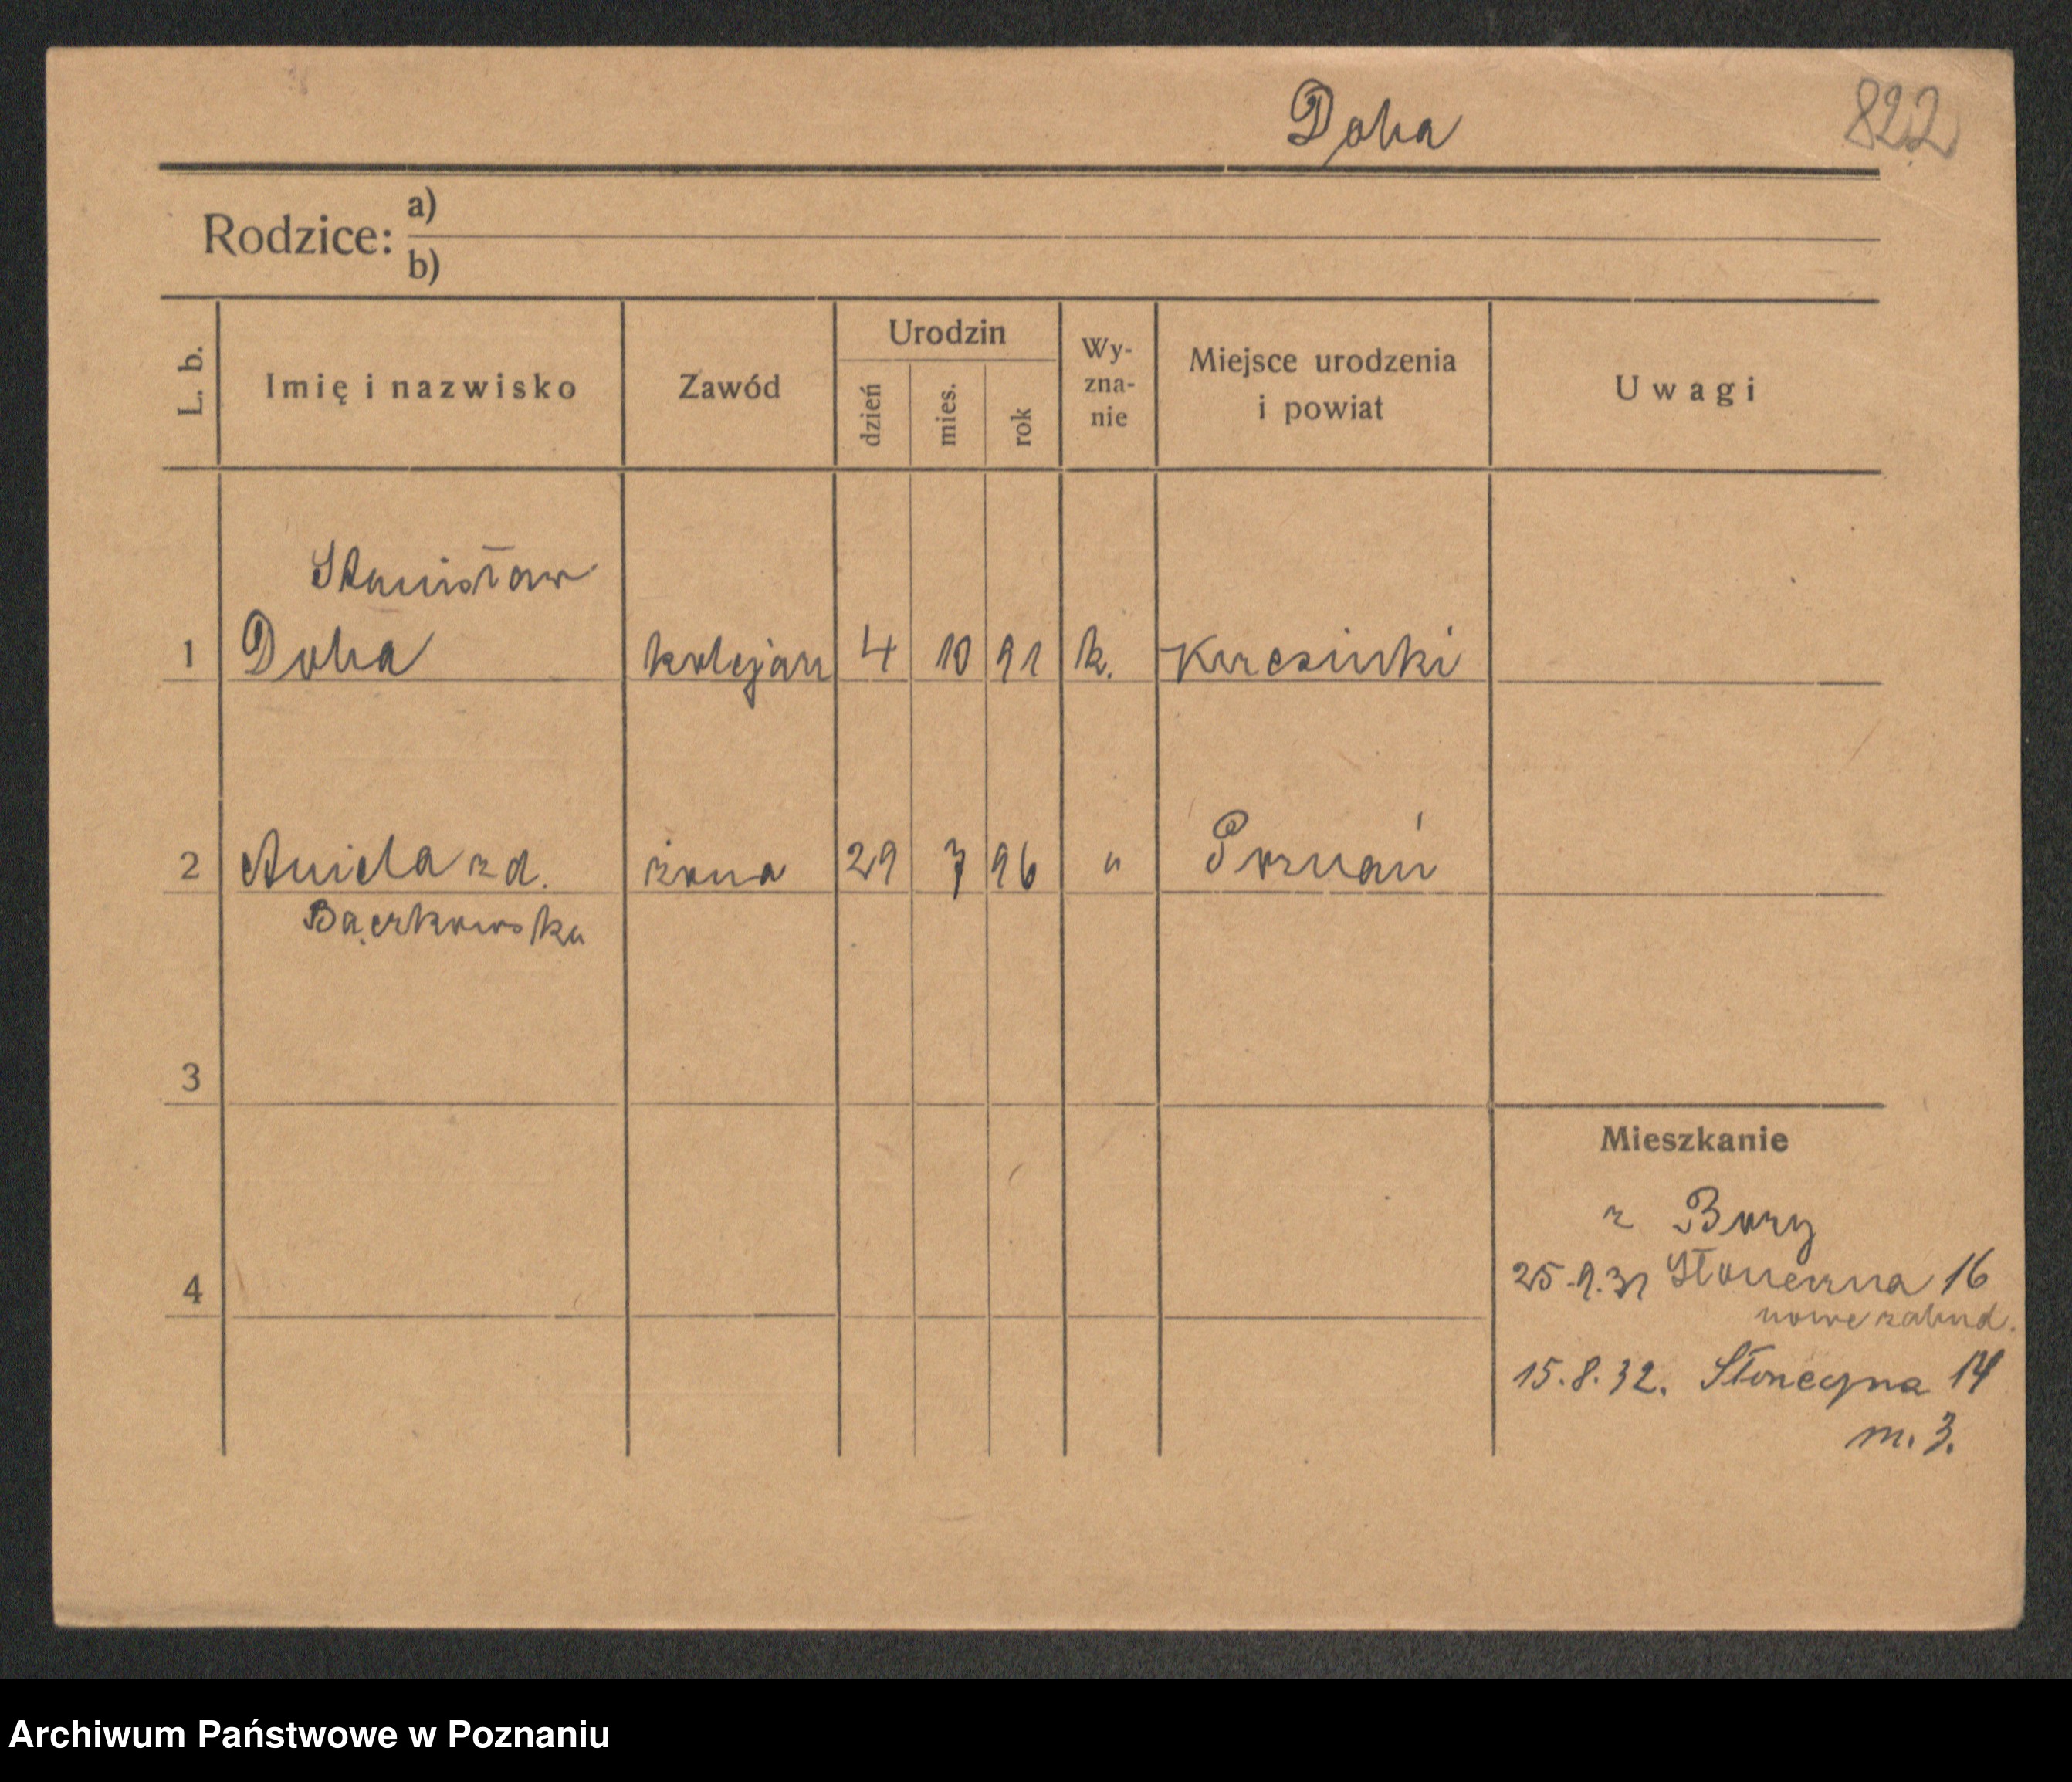 Doba
822
Rodzice: a)
b)
L. b.
Imię i nazwisko
Zawód
Urodzin
dzień
mies.
rok
Wy-
zna-
nie
Miejsce urodzenia
i powiat
Uwagi
Stanisław
1 Doba kolejarz 4 10 91 k.
2 Aniela z d. żona 29 7 96 " Poznań
Bączkowska
3
Mieszkanie
4
z Bory
25.9.31 Słoneczna 16
nowe zabud.
15.8.32. Słoneczna 14
m. 3.
Archiwum Państwowe w Poznaniu